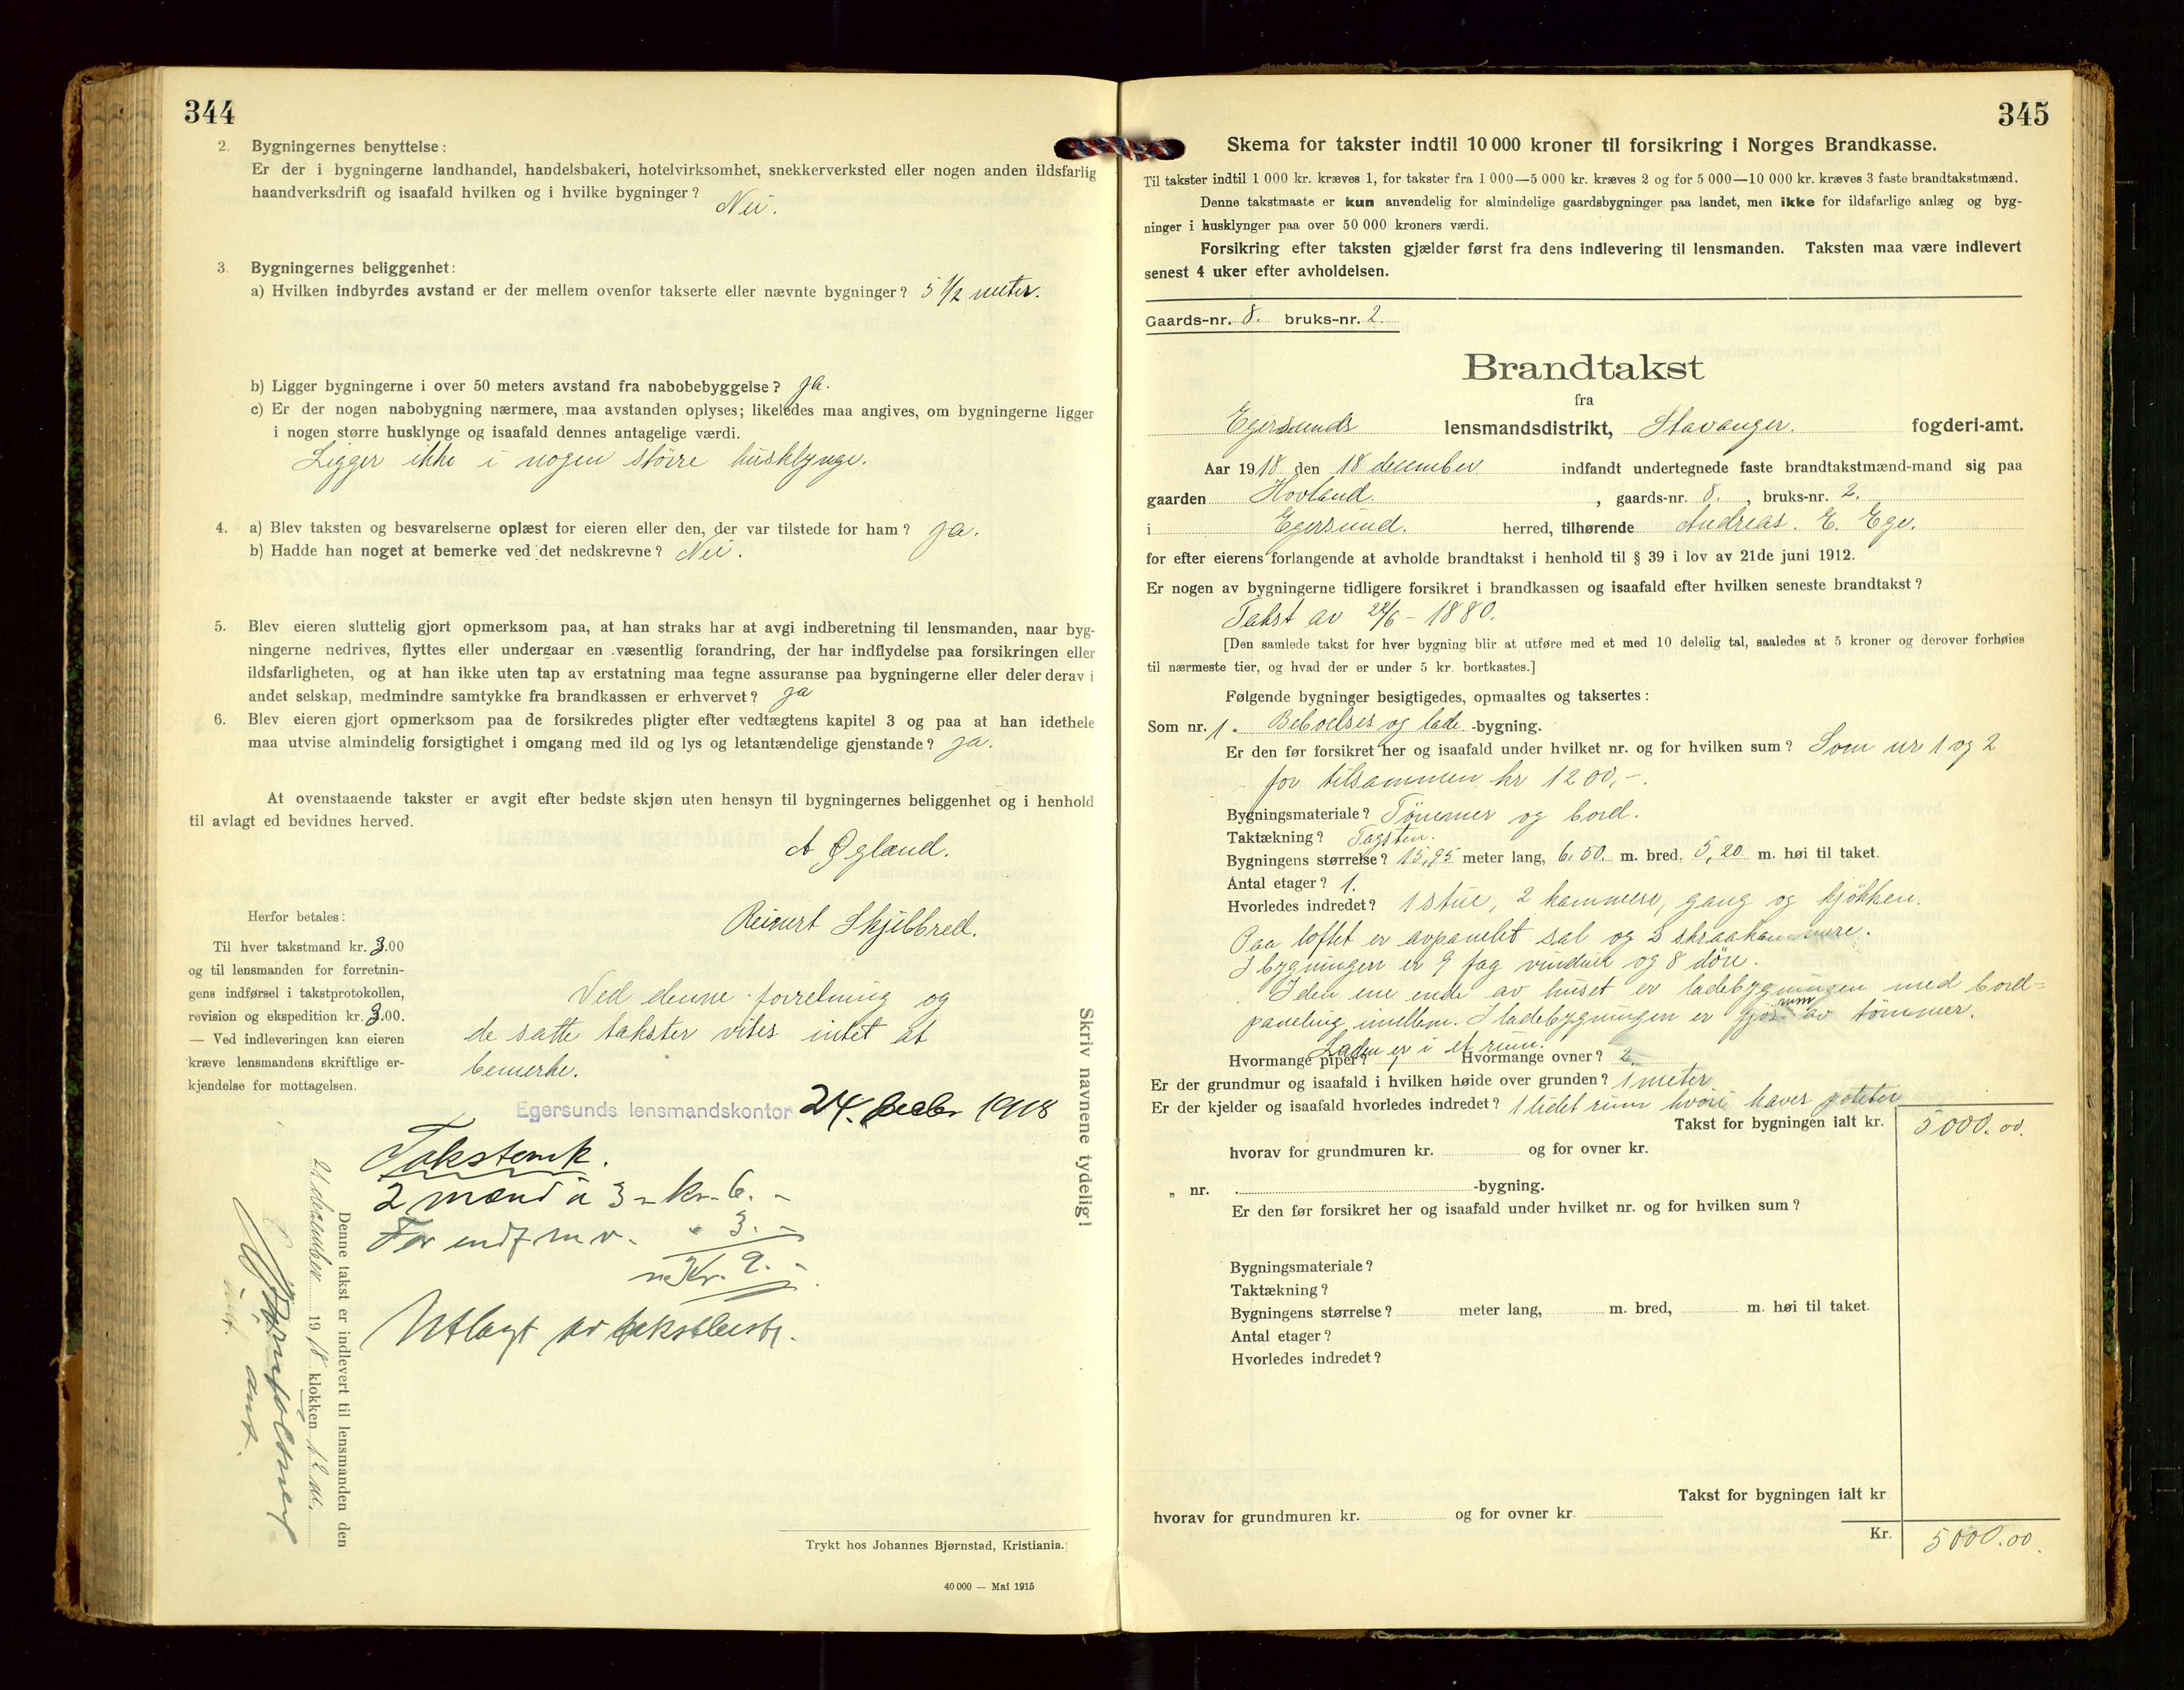 344
2. Bygningernes benyttelse:
Er der i bygningerne landhandel, handelsbakeri, hotelvirksomhet, snekkerverksted eller nogen anden ildsfarlig
haandverksdrift og isaafald hvilken og i hvilke bygninger? Nei.
3. Bygningernes beliggenhet:
a) Hvilken indbyrdes avstand er der mellem ovenfor takserte eller nævnte bygninger? 5 1/2 meter.
b) Ligger bygningerne i over 50 meters avstand fra nabobebyggelse? ja.
c) Er der nogen nabobygning nærmere, maa avstanden oplyses; likeledes maa angives, om bygningerne ligger
i nogen større husklynge og isaafald dennes antagelige værdi.
Ligger ikke i nogen större husklynge.
4. a) Blev taksten og besvarelserne oplæst for eieren eller den, der var tilstede for ham? ja.
b) Hadde han noget at bemerke ved det nedskrevne? Nei.
5. Blev eieren sluttelig gjort opmerksom paa, at han straks har at avgi indberetning til lensmanden, naar byg-
ningerne nedrives, flyttes eller undergaar en væsentlig forandring, der har indflydelse paa forsikringen eller
ildsfarligheten, og at han ikke uten tap av erstatning maa tegne assuranse paa bygningerne eller deler derav i
andet selskap, medmindre samtykke fra brandkassen er erhvervet? ja
6. Blev eieren gjort opmerksom paa de forsikredes pligter efter vedtægtens kapitel 3 og paa at han idethele
maa utvise almindelig forsigtighet i omgang med ild og lys og letantændelige gjenstande? ja.
At ovenstaaende takster er avgit efter bedste skjøn uten hensyn til bygningernes beliggenhet og i henhold
til avlagt ed bevidnes herved.
A Øgland.
Reinert Skjebbred.
Herfor betales:
Til hver takstmand kr. 3.00
og til lensmanden for forretnin-
gens indførsel i takstprotokollen,
revision og ekspedition kr. 3.00.
— Ved indleveringen kan eieren
kræve lensmandens skriftlige er-
kjendelse for mottagelsen.
Ved denne forretning og
de satte takster vites intet at
bemerke.
Egersunds lensmandskontor 24. decbr 1918
2 mænd a 3 - kr. 6. -
For indf m v. " 3. -
Kr. 9. -
Utlagt av
Denne takst er indlevert til lensmanden den
21 december 1918 klokken 12
Skriv navnene tydelig!
Trykt hos Johannes Bjørnstad, Kristiania.
40 000 — Mai 1915
345
Skema for takster indtil 10 000 kroner til forsikring i Norges Brandkasse.
Til takster indtil 1 000 kr. kræves 1, for takster fra 1 000—5 000 kr. kræves 2 og for 5 000—10 000 kr. kræves 3 faste brandtakstmænd.
Denne takstmaate er kun anvendelig for almindelige gaardsbygninger paa landet, men ikke for ildsfarlige anlæg og byg-
ninger i husklynger paa over 50 000 kroners værdi.
Forsikring efter taksten gjælder først fra dens indlevering til lensmanden. Taksten maa være indlevert
senest 4 uker efter avholdelsen.
Gaards-nr. 8. bruks-nr. 2.
Brandtakst
fra
Egersunds lensmandsdistrikt, Stavanger. fogderi-amt.
Aar 1918 den 18 december indfandt undertegnede faste brandtakstmænd-mand sig paa
gaarden Hovland. , gaards-nr. 8. , bruks-nr. 2.
i Egersund. herred, tilhørende Andreas. E. Ege.
for efter eierens forlangende at avholde brandtakst i henhold til § 39 i lov av 21de juni 1912.
Er nogen av bygningerne tidligere forsikret i brandkassen og isaafald efter hvilken seneste brandtakst?
Takst av 22/6 - 1880.
[Den samlede takst for hver bygning blir at utføre med et med 10 delelig tal, saaledes at 5 kroner og derover forhøies
til nærmeste tier, og hvad der er under 5 kr. bortkastes.]
Følgende bygninger besigtigedes, opmaaltes og taksertes:
Som nr. 1. Beboelses og lade -bygning.
Er den før forsikret her og isaafald under hvilket nr. og for hvilken sum? Som nr 1 og 2
for tilsammen kr 1200,-.
Bygningsmateriale? Tömmer og bord.
Taktækning? Tagsten.
Bygningens størrelse? 15,95 meter lang, 6.50 m. bred, 5,20 m. høi til taket.
Antal etager? 1.
Hvorledes indredet? 1 stue, 2 kammere, gang og kjökken.
Paa loftet er avpanelet sal og 2 skraakammere.
I bygningen er 9 fag vinduer og 8 döre.
I den ene ende av huset er ladebygningen med bord-
paneling imellem. I ladebygningen er fjösrum av tömmer.
Laden er i et rum.
Hvormange piper? 1 Hvormange ovner? 2.
Er der grundmur og isaafald i hvilken høide over grunden? 1 meter
Er der kjelder og isaafald hvorledes indredet? 1 lidet rum hvori haves poteter
Takst for bygningen ialt kr. 5000.00.
hvorav for grundmuren kr. og for ovner kr.
„ nr. -bygning.
Er den før forsikret her og isaafald under hvilket nr. og for hvilken sum?
Bygningsmateriale?
Taktækning?
Bygningens størrelse? meter lang, m. bred, m. høi til taket.
Antal etager?
Hvorledes indredet?
Takst for bygningen ialt kr
hvorav for grundmuren kr. og for ovner kr.
Kr. 5000.00.